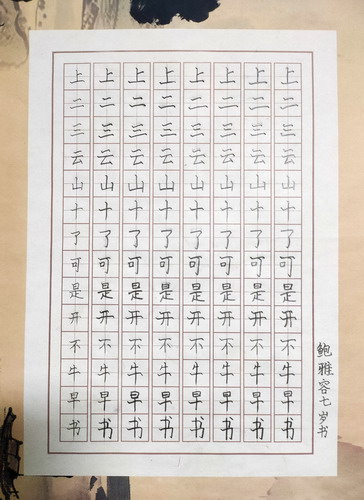 上二三云山十了可是开不牛早书
上二三云山十了可是开不牛早书
上二三云山十了可是开不牛早书
上二三云山十了可是开不牛早书
上二三云山十了可是开不牛早书
上二三云山十了可是开不牛早书
上二三云山十了可是开不牛早书
上二三云山十了可是开不牛早书
鲍雅容七岁书